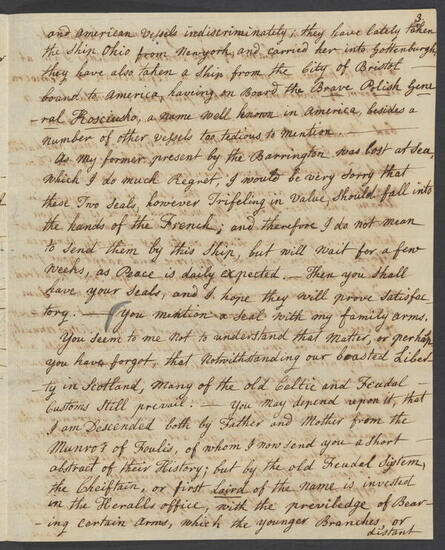 3.
and American Vessels indiscriminately; they have lately taken
the Ship Ohio from New-york, and carried her into Gottenburgh,
they have also taken a Ship from the City of Bristol
bound to America, having on Board the Brave Polish Gene
-ral Kosciusko, a name well known in America, besides a
number of other vessels too tedious to mention. —
As my former present by the Barrington was lost at sea,
which I do much Regret, I would be very sorry that
these Two Seals, however Trifeling in Value, Should fall into
the hands of the French; and therefore I do not mean
to send them by this Ship, but will wait for a few
weeks, as Peace is daily expected. — Then you shall
have your Seals, and I hope they will prove Satisfac
-tory. — You mention a Seal with my family arms.
You seem to me not to understand that Matter, or perhaps
you have forgot, that Notwithstanding our boasted Liber
-ty in Scotland, Many of the old Celtic and Feudal
Customs Still prevail. — You may depend upon it, that
I am Descended both by Father and Mother from the
Munro's of Foulis, of whom I now send you a Short
abstract of their History; but by the old Feudal System,
the Cheiftain, or first Laird of the Name is invested
in the Heralls office, with the previledge of Bear
-ing certain Arms, which the younger Branches, or
distant